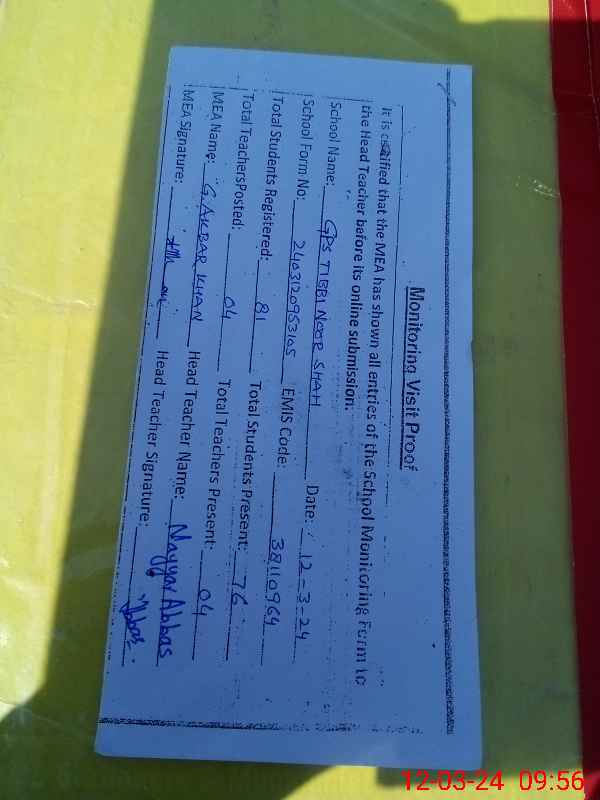 Monitoring Visit Proof
It is certified that the MEA has shown all entries of the School Monitoring Form to
the Head Teacher before its online submission.
School Name: GPS TIBBI NOOR SHAH Date: 12-3-24
School Form No: 2403120953105 EMIS Code: 38110964
Total Students Registered: 81 Total Students Present: 76
Total TeachersPosted: 04 Total Teachers Present: 04
MEA Name: G.AKBAR KHAN Head Teacher Name: Nayyar Abbas
MEA Signature: Head Teacher Signature: Abbas
12-03-24 09:56